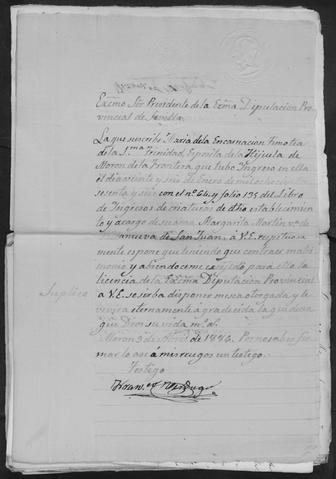 Exmo Sôr Presidente de la Exma Diputacion Pro
vincial de Sevilla.
La que suscribe Maria de la Encarnacion Timotea
de la S.ma Trinidad, Esposita de la Hijuela de
Moron de la Frontera que tubo Ingreso en ella
el dia veinte y seis de Enero de mil ochocientos
sesenta y seis con el nº 64 y folio 195 del Libro
de Ingresos de criaturas de dho establecimien
to y a cargo de su ama Margarita Martin vª de
Villanueva de San Juan, á V.E. respetuosa
mente espone que teniendo que contraer matri
monio y abiendome exijido para ello la
licencia de la Exma Diputacion Provincial
Suplico
a V.E. se sirba disponer me sea otorgada y le
vivira eternamente á gradecida la que desea
que Dios su vida m.s a.s
Moron 9 de Abril de 1886. Por no saber fir
mar lo ace á mis ruegos un testigo.
Testigo